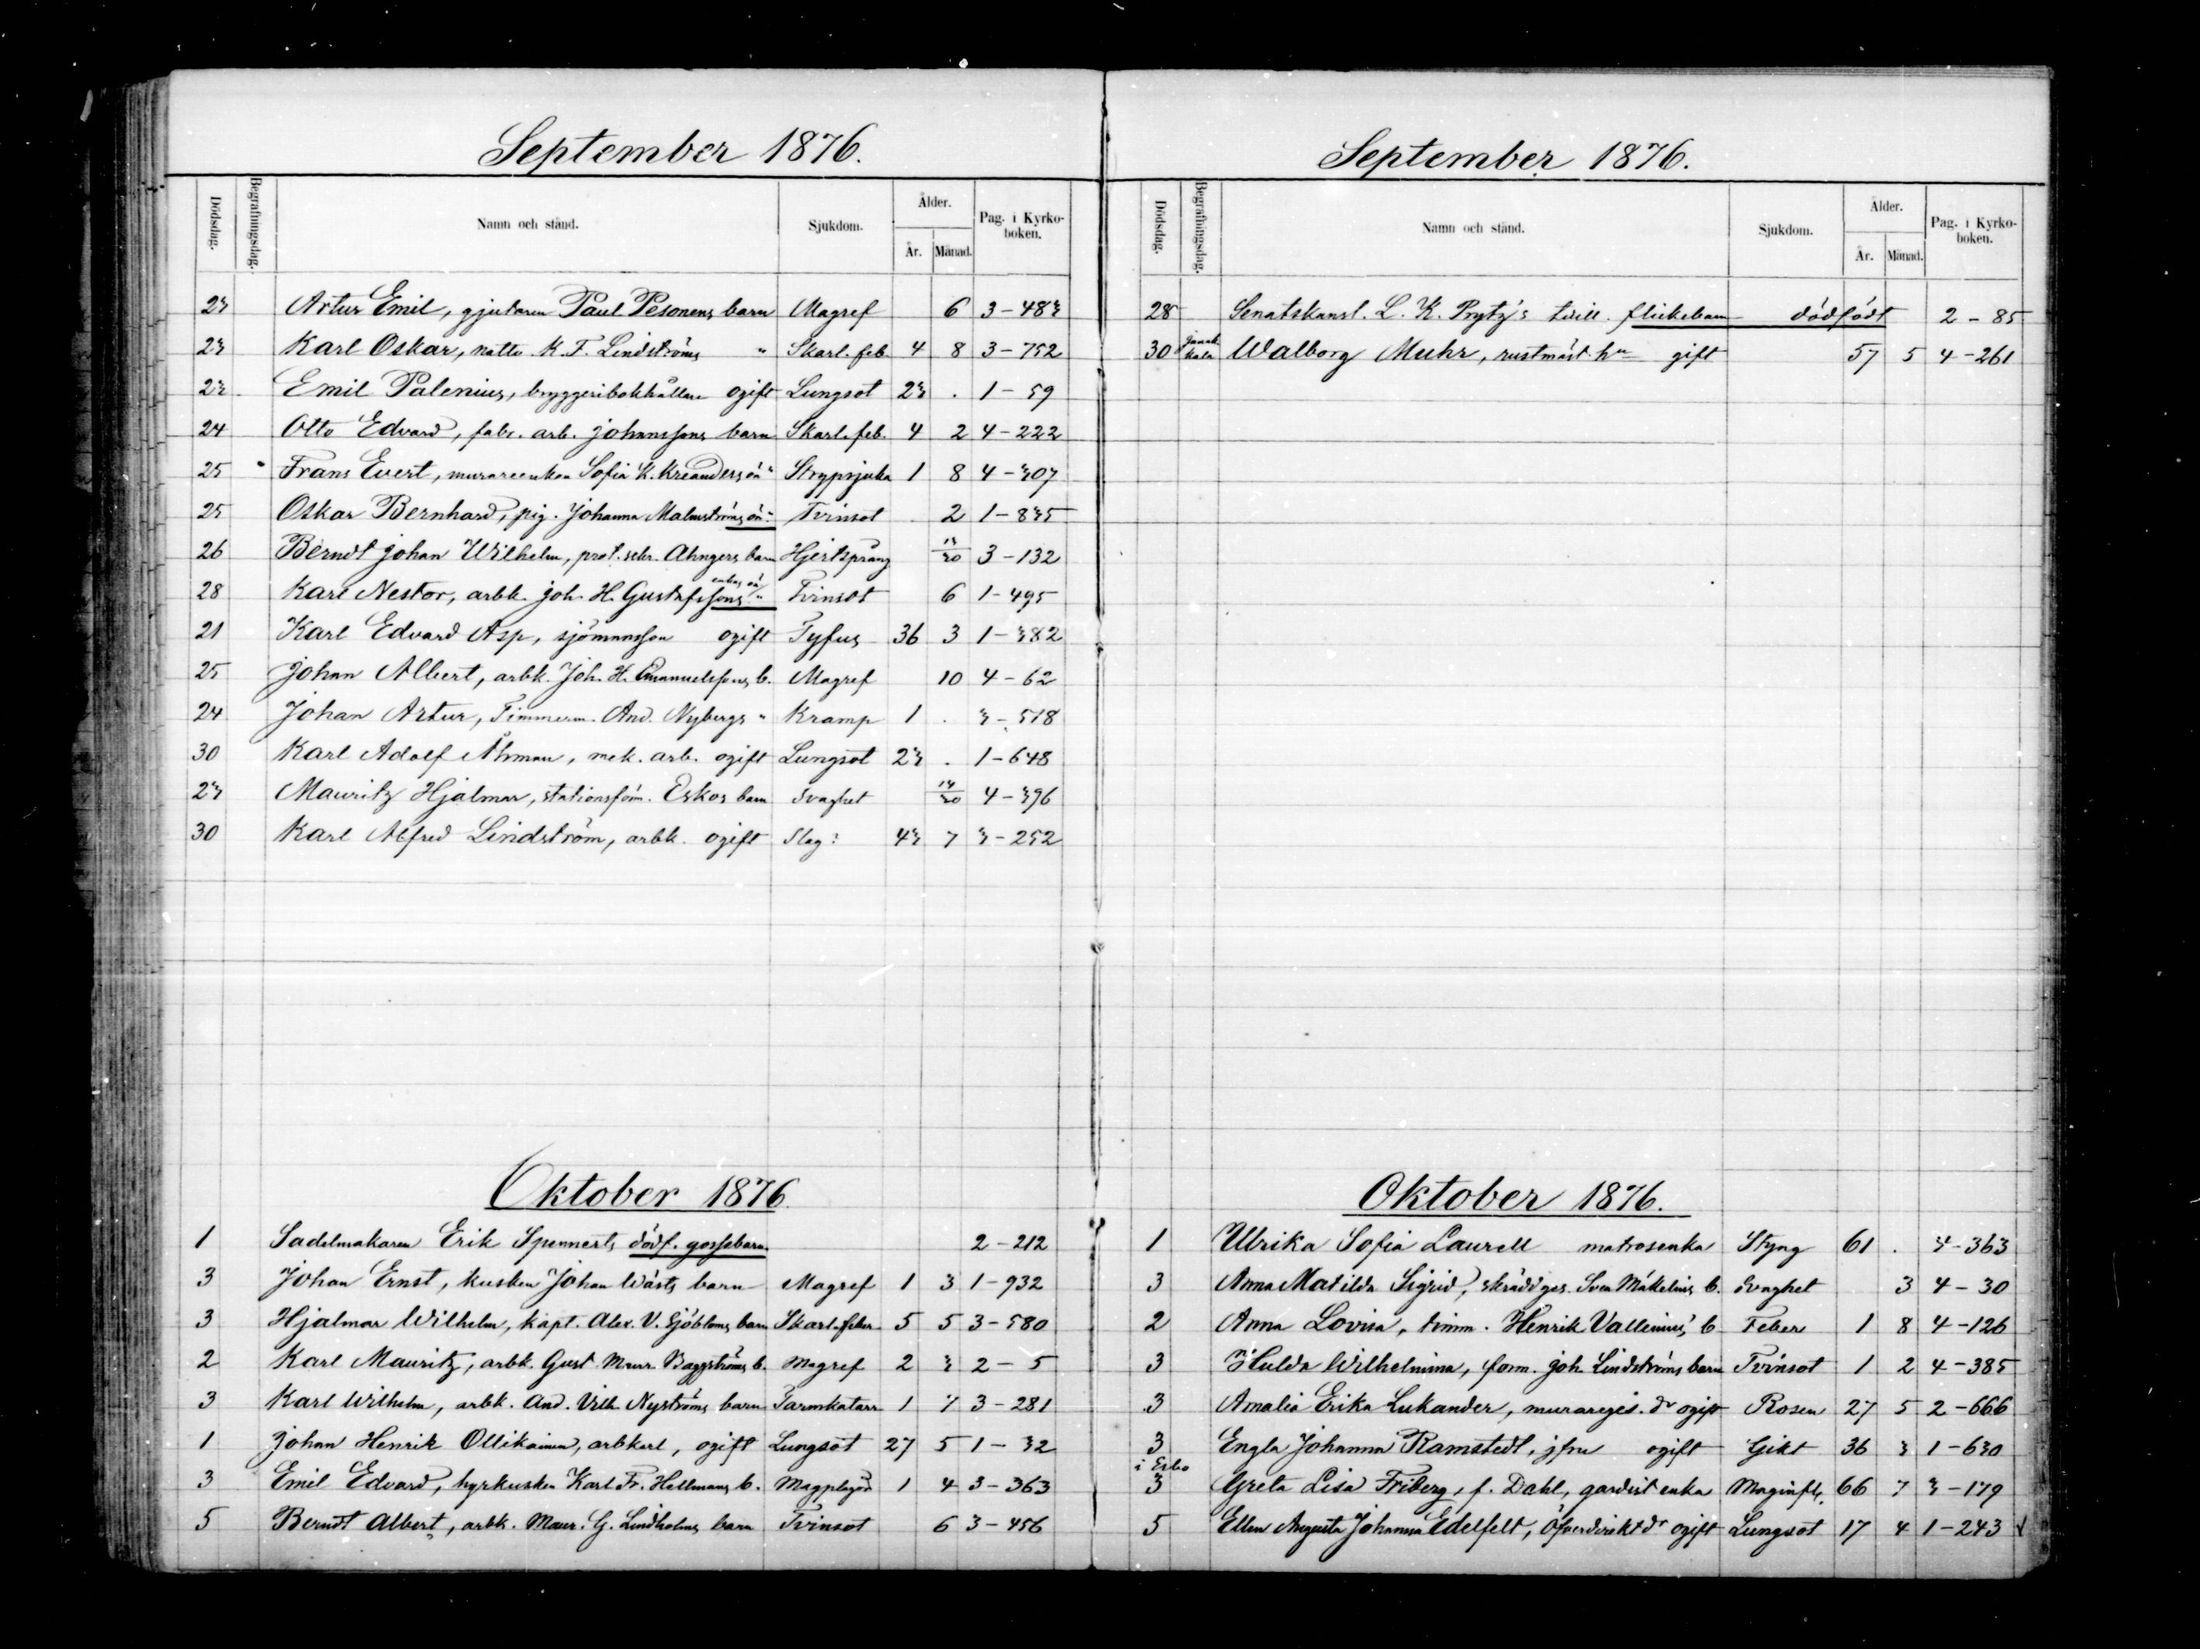 September 1876.
Dödsdag. Begrafningsdag. Namn och stånd. Sjukdom. Ålder. År. Månad. Pag. i Kyrkoboken.
23 Artur Emil, gjutaren Paul Pesonens barn Magref 6 3-483
23 Karl Oskar, K. F. Lindströms " Skarl. feb. 4 8 3-752
23 Emil Palenius, bryggeribokhållare ogift Lungsot 23 . 1-59
24 Otto Edvard, fabr. arb. Johanssons barn Skarl. feb. 4 2 4-222
25 Frans Evert, murareenkan Sofia K. Kreanders oä " Strypsjuka 1 8 4-307
25 Oskar Bernhard, pig. Johanna Malmströms oä " Tvinsot 2 1-835
26 Berndt Johan Wilhelm, prot. sekr. Ahngers barn Hjertsprång 3-132
28 Karl Nestor, arbk. Joh. H. Gustafssons enkas oä " Tvinsot 6 1-495
21 Karl Edvard Asp, sjömansson ogift Tyfus 36 3 1-382
25 Johan Albert, arbk. Joh. H. Emanuelssons b. Magref 10 4-62
24 Johan Artur, Timmerm. And. Nybergs " Kramp 1 . 3-518
30 Karl Adolf Åhman, mek. arb. ogift Lungsot 23 . 1-648
23 Mauritz Hjalmar, stationsförm. Eskos barn Svaghet 14/30 4-396
30 Karl Alfred Lindström, arbk. ogift Slag 43 7 3-252
Oktober 1876.
1 Sadelmakaren Erik Spennerts dödf. gossebarn. 2-212
3 Johan Ernst, kusken Johan Wästs barn Magref 1 3 1-932
3 Hjalmar Wilhelm, kapt. Alex. V. Sjöbloms barn Skarl. feber 5 5 3-580
2 Karl Mauritz, arbk. Gust. Maur. Baggströms b. Magref 2 3 2-5
3 Karl Wilhelm, arbk. And. Vilh. Nyströms barn Tarmkatarr 1 7 3-281
1 Johan Henrik Ollikainen, arbkarl, ogift Lungsot 27 5 1-32
3 Emil Edvard, hyrkusken Karl Fr. Hellmans b. 1 4 3-363
5 Berndt Albert, arbk. Maur. G. Lindholms barn Tvinsot 6 3-456
September 1876.
Dödsdag. Begrafningsdag. Namn och stånd. Sjukdom. Ålder. År. Månad. Pag. i Kyrkoboken.
28 Senatskansl. L. K. Prytz's tvill. flickebarn dödfödt 2-85
30 Janakkala Walborg Muhr, rustmäst. hu gift 57 5 4-261
Oktober 1876.
1 Ulrika Sofia Laurell matrosenka Styng 61 . 3-363
3 Anna Matilda Sigrid, skräddges. Sven Mäkelins b. Svaghet 3 4-30
2 Anna Lovisa, timm. Henrik Vallenius' b Feber 1 8 4-126
3 Hulda Wilhelmina, form. Joh. Lindströms barn Tvinsot 1 2 4-385
3 Amalia Erika Lukander, murareges. dr ogift Rosen 27 5 2-666
3 Engla Johanna Ramstedt, jfru ogift Gikt 36 3 1-630
i Esbo
3 Greta Lisa Friberg, f. Dahl, gardist enka Maginfl. 66 7 3-179
5 Ellen Augusta Johanna Edelfelt, Öfverdirekt dr ogift Lungsot 17 4 1-243